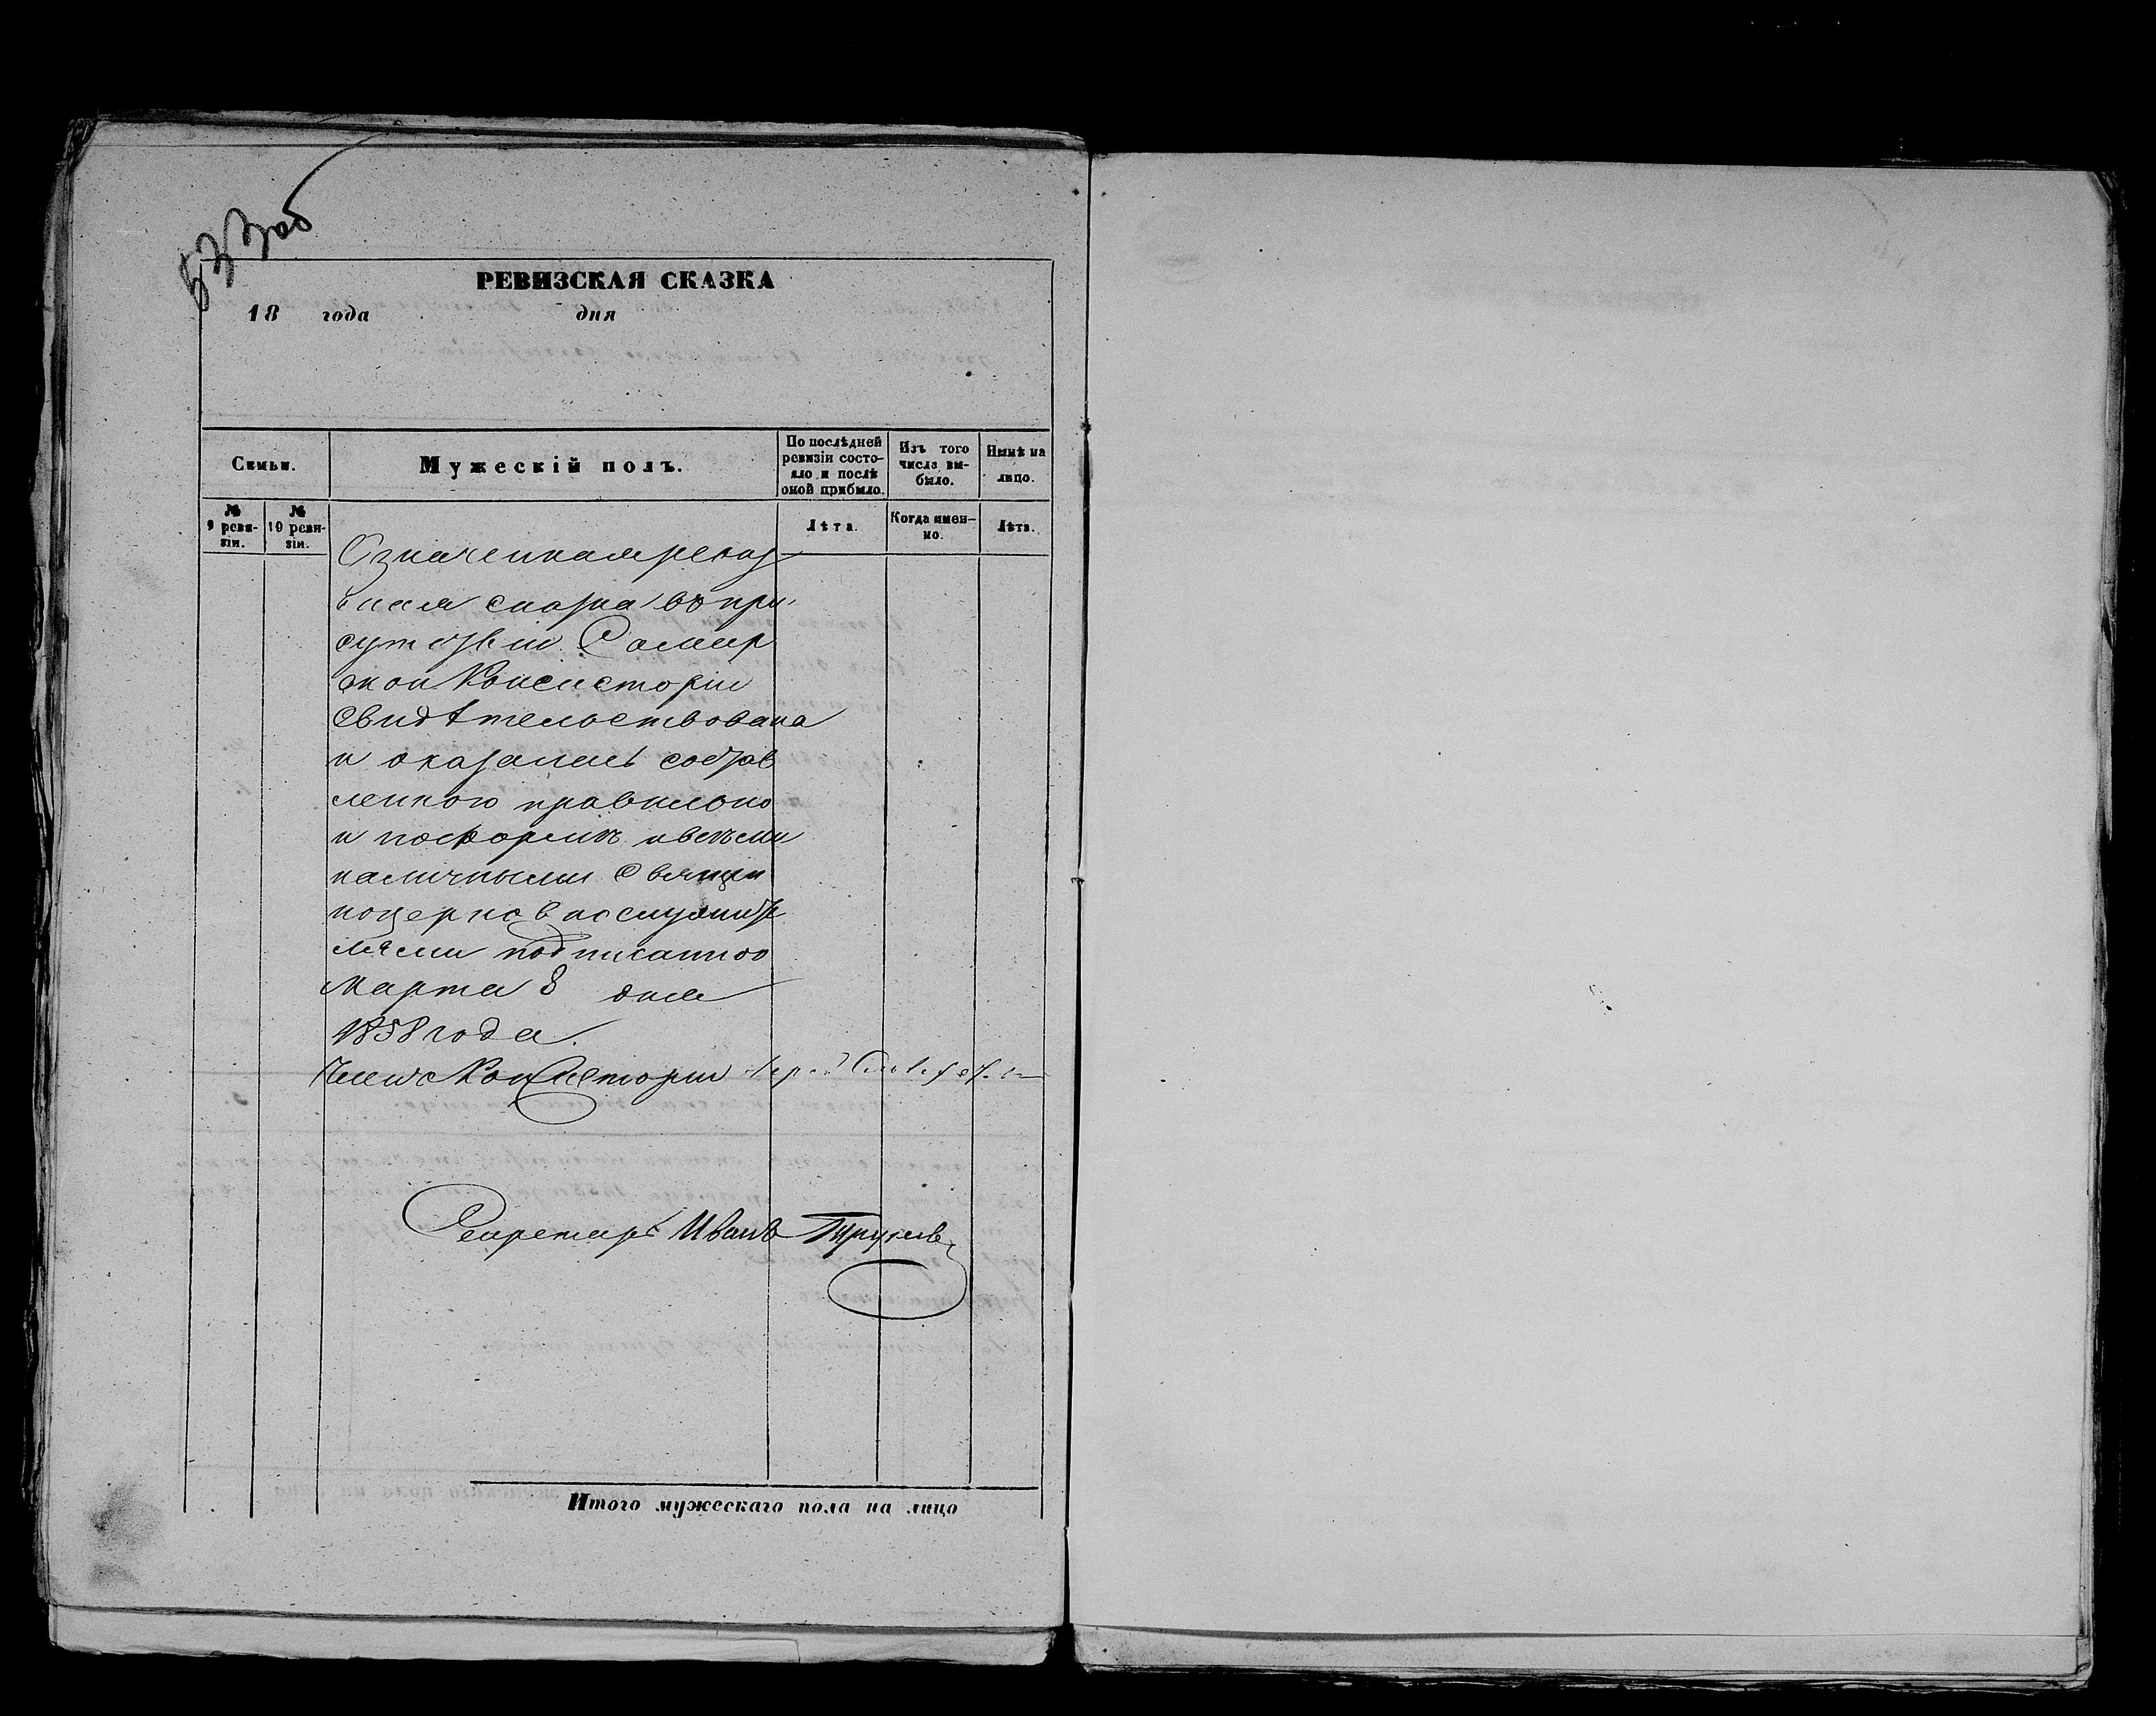 533 об
РЕВИЗСКАЯ СКАЗКА
18 года дня
Семьи.
Мужескій полъ.
По послѣдней ревизіи состо-
яло и послѣ оной прибыло.
Изъ того числа вы-
было.
Нынѣ на лицо.
№ 9 реви-
зіи.
№ 10 реви-
зіи.
Лѣта.
Когда имен-
но.
Лѣта.
Означенная ревиз
ская сказка въ при
сутствіи Самар
ской Консисторіи
свидѣтельствована
и оказалась состав
ленною правильно
и по формѣ и всѣми
наличными Священ
но церковнослужите
лями подписанною
Марта 8 дня
1858 года.
Членъ Консисторіи
Секретарь Иванъ
Итого мужескаго пола на лицо